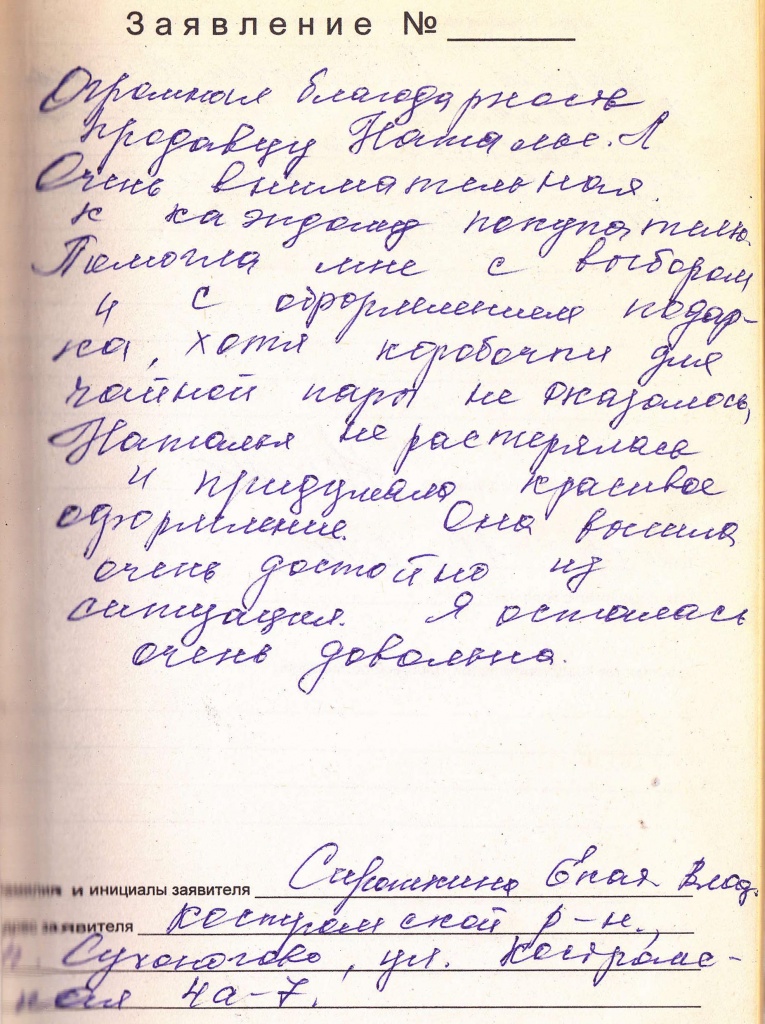 Заявление № ______
Огромная благодарность
продавцу Наталье. Л
Очень внимательная
к каждому покупателю.
Помогла мне с выбором
и с оформлением подар-
ка, хотя коробочки для
чайной пары не оказалось,
Наталья не растерялась
и придумала красивое
оформление. Она вышла
очень достойно из
ситуация. Я осталась
очень довольна.
и инициалы заявителя Влад.
заявителя Костромской р-н.,
п. Сухоногово, ул. Костромс-
кая 4а-7.